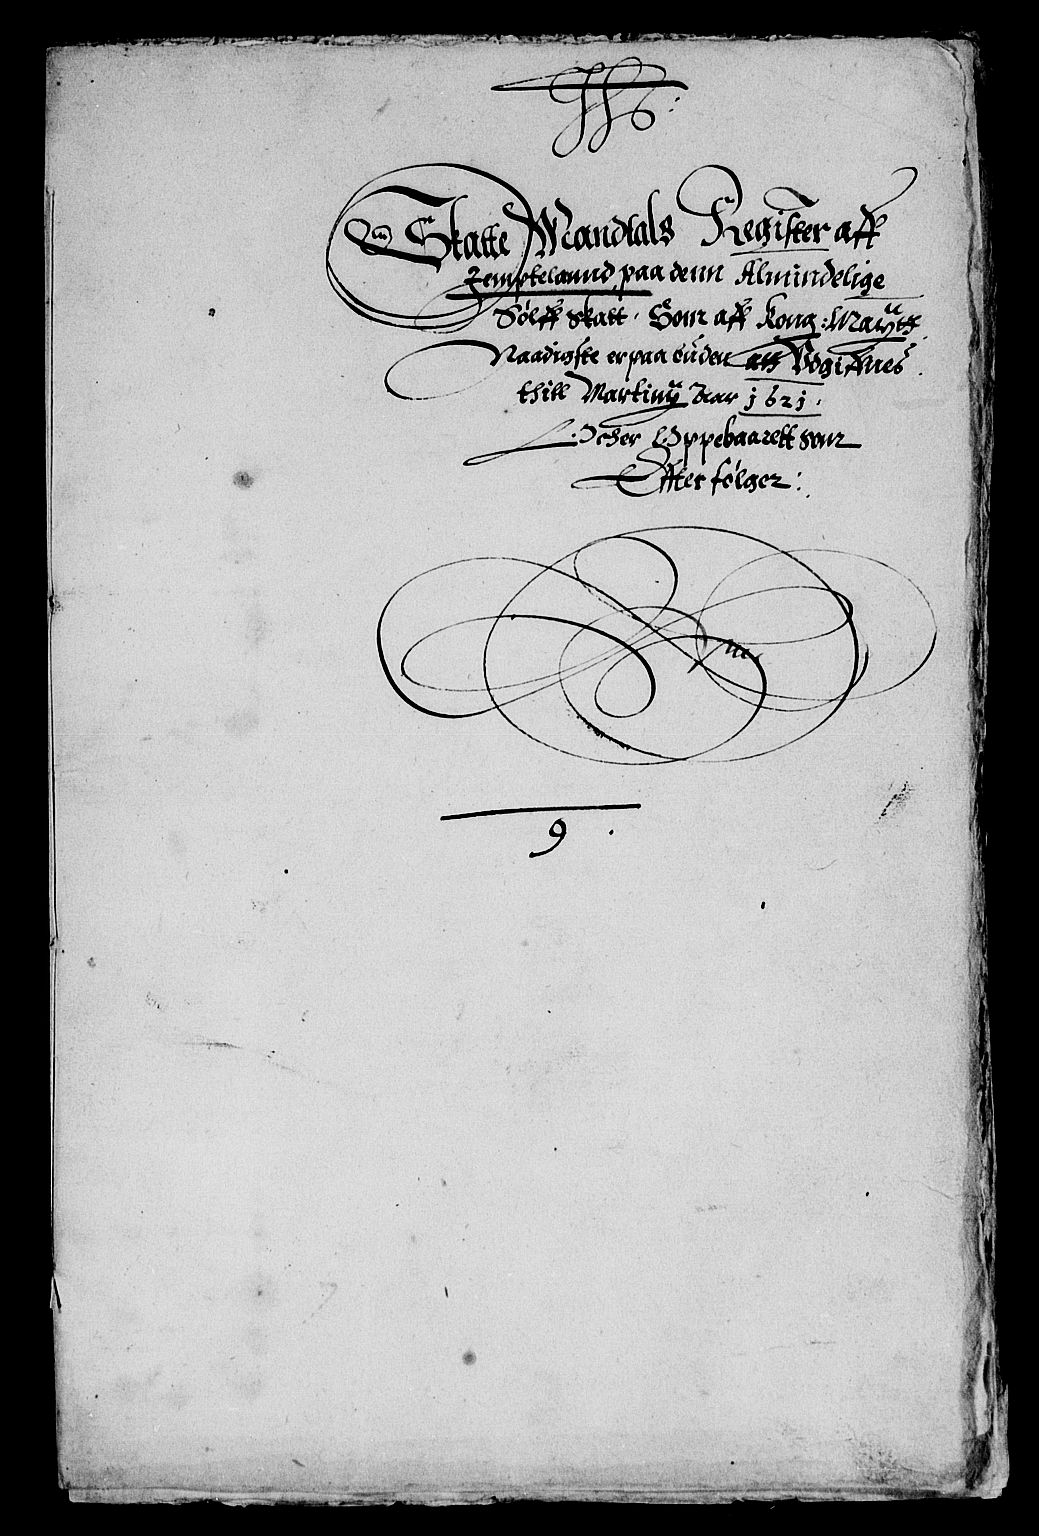 IHS:
Skatte Mandtals Register aff
Jempteland, paa denn Almindelige
Sølff Skatt. Som aff Kong: Maÿtt
Naadigste er paa buden att Udgiffues
thill Martinÿ Aar 1621.
Och er Oppebaarett som
Effter følger:
9.